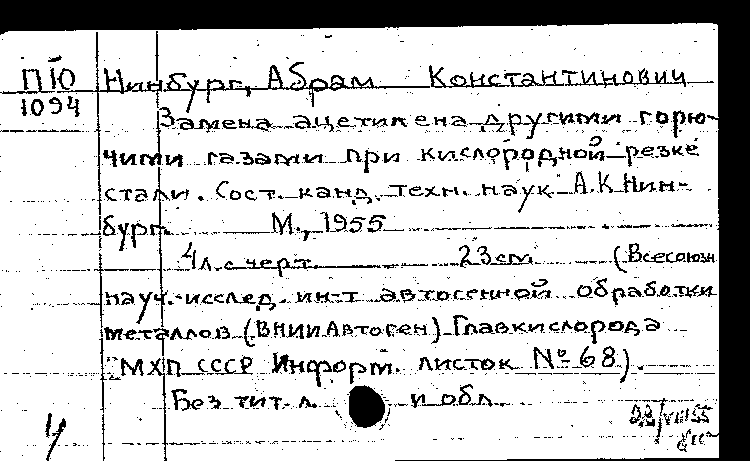 ПЮ
1094
Нинбург, Абрам Константинович
Замена ацетилена другими горю-
чими газами при кислородной резке
стали. Сост. канд. техн. наук А.К Нин-
бург. М., 1955
4 л. с черт. 23 см. (Всесоюзн
науч.-исслед. ин-т автогенной обработки
металлов (ВНИИАвтоген) Главкислорода
МХП СССР Информ. листок № 68).
Без тит. л. и обл.
22/VIII 55